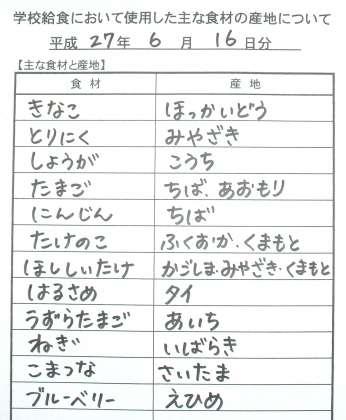 学校給食において使用した主な食材の産地について
平成 27年 6 月 16 日分
【主な食材と産地】
食 材 産 地
きなこ ほっかいどう
とりにく みやざき
しょうが こうち
たまご ちば、あおもり
にんじん ちば
たけのこ ふくおか・くまもと
ほししいたけ かごしま・みやざき・くまもと
はるさめ タイ
うずらたまご あいち
ねぎ いばらき
こまつな さいたま
ブルーベリー えひめ